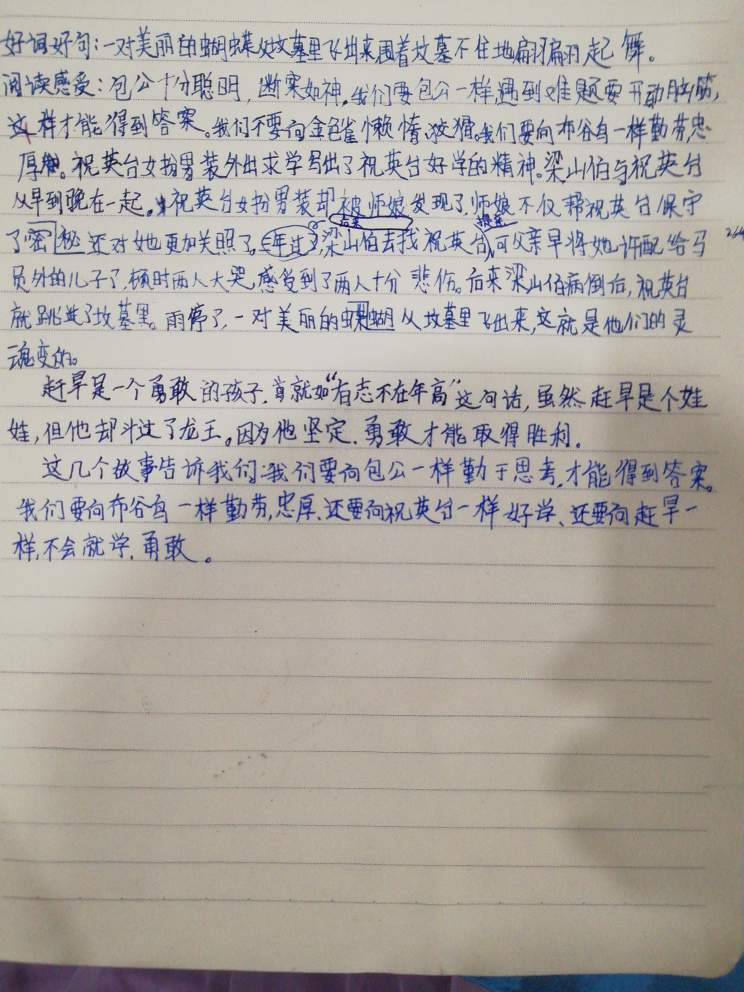 好词好句:一对美丽的蝴蝶从坟墓里飞出来围着坟墓不住地翩翩起舞。
阅读感受:包公十分聪明,断案如神。我们要包公一样遇到难题要开动脑筋,
这样才能得到答案。我们不要向金色雀懒惰、狡猾。我们要向布谷鸟一样勤劳,忠
厚。祝英台女扮男装外出求学写出了祝英台好学的精神。梁山伯与祝英台
从早到晚在一起。祝英台女扮男装却被师娘发现了,师娘不仅帮祝英台保守
了密秘还对她更加关照了。三年过了,后来梁山伯去找祝英台提亲,可父亲早将她许配给马
员外的儿子了,顿时两人大哭,感受到了两人十分悲伤。后来梁山伯病倒后,祝英台
就跳进了坟墓里。雨停了,一对美丽的蝶蝴从坟墓里飞出来,这就是他们的灵
魂变的。
赶旱是一个勇敢的孩子,就如“有志不在年高”这句话,虽然赶旱是个娃
娃,但他却斗过了龙王。因为他坚定、勇敢才能取得胜利。
这几个故事告诉我们:我们要向包公一样勤于思考,才能得到答案。
我们要向布谷鸟一样勤劳,忠厚、还要向祝英台一样好学、还要向赶旱一
样,不会就学、勇敢。